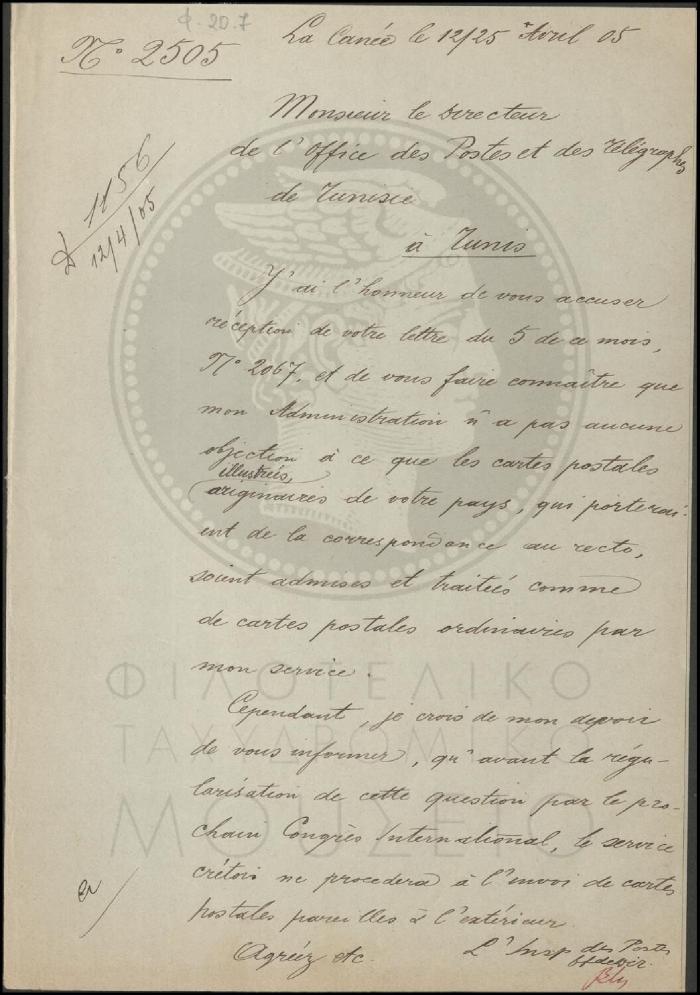 Φ. 20.7
N° 2505
La Canée le 12/25 Avril 05
Monsieur le Directeur
de l'Office des Postes et des Télégraphes
de Tunisie
à Tunis
1156
12/4/05
J'ai l'honneur de vous accuser
réception de votre lettre du 5 de ce mois,
N° 2067, et de vous faire connaître que
mon Administration n'a pas aucune
objection à ce que les cartes postales
illustrées,
originaires de votre pays, qui porterai-
ent de la correspondance au recto,
soient admises et traitées comme
de cartes postales ordinaires par
mon service.
Cependant, je crois de mon devoir
de vous informer, qu'avant la régu-
larisation de cette question par le pro-
chain Congrès International, le service
crétois ne procedera à l'envoi de cartes
postales pareilles à l'extérieur.
Agréez etc.
L'Insp des Postes
ΦΙΛΟΤΕΛΙΚΟ
ΤΑΧΥΔΡΟΜΙΚΟ
ΜΟΥΣΕΙΟ